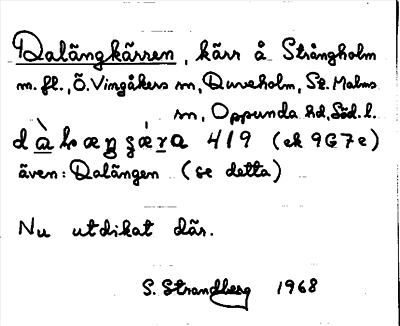 Dalängkärren, kärr å Strångholm
m. fl., Ö. Vingåkers sn, Duveholm, St. Malms
sn, Oppunda hd, Söd. l.
419 (ek 9G7e)
även: Dalängen (se detta)
Nu utdikat där.
S. Strandberg 1968